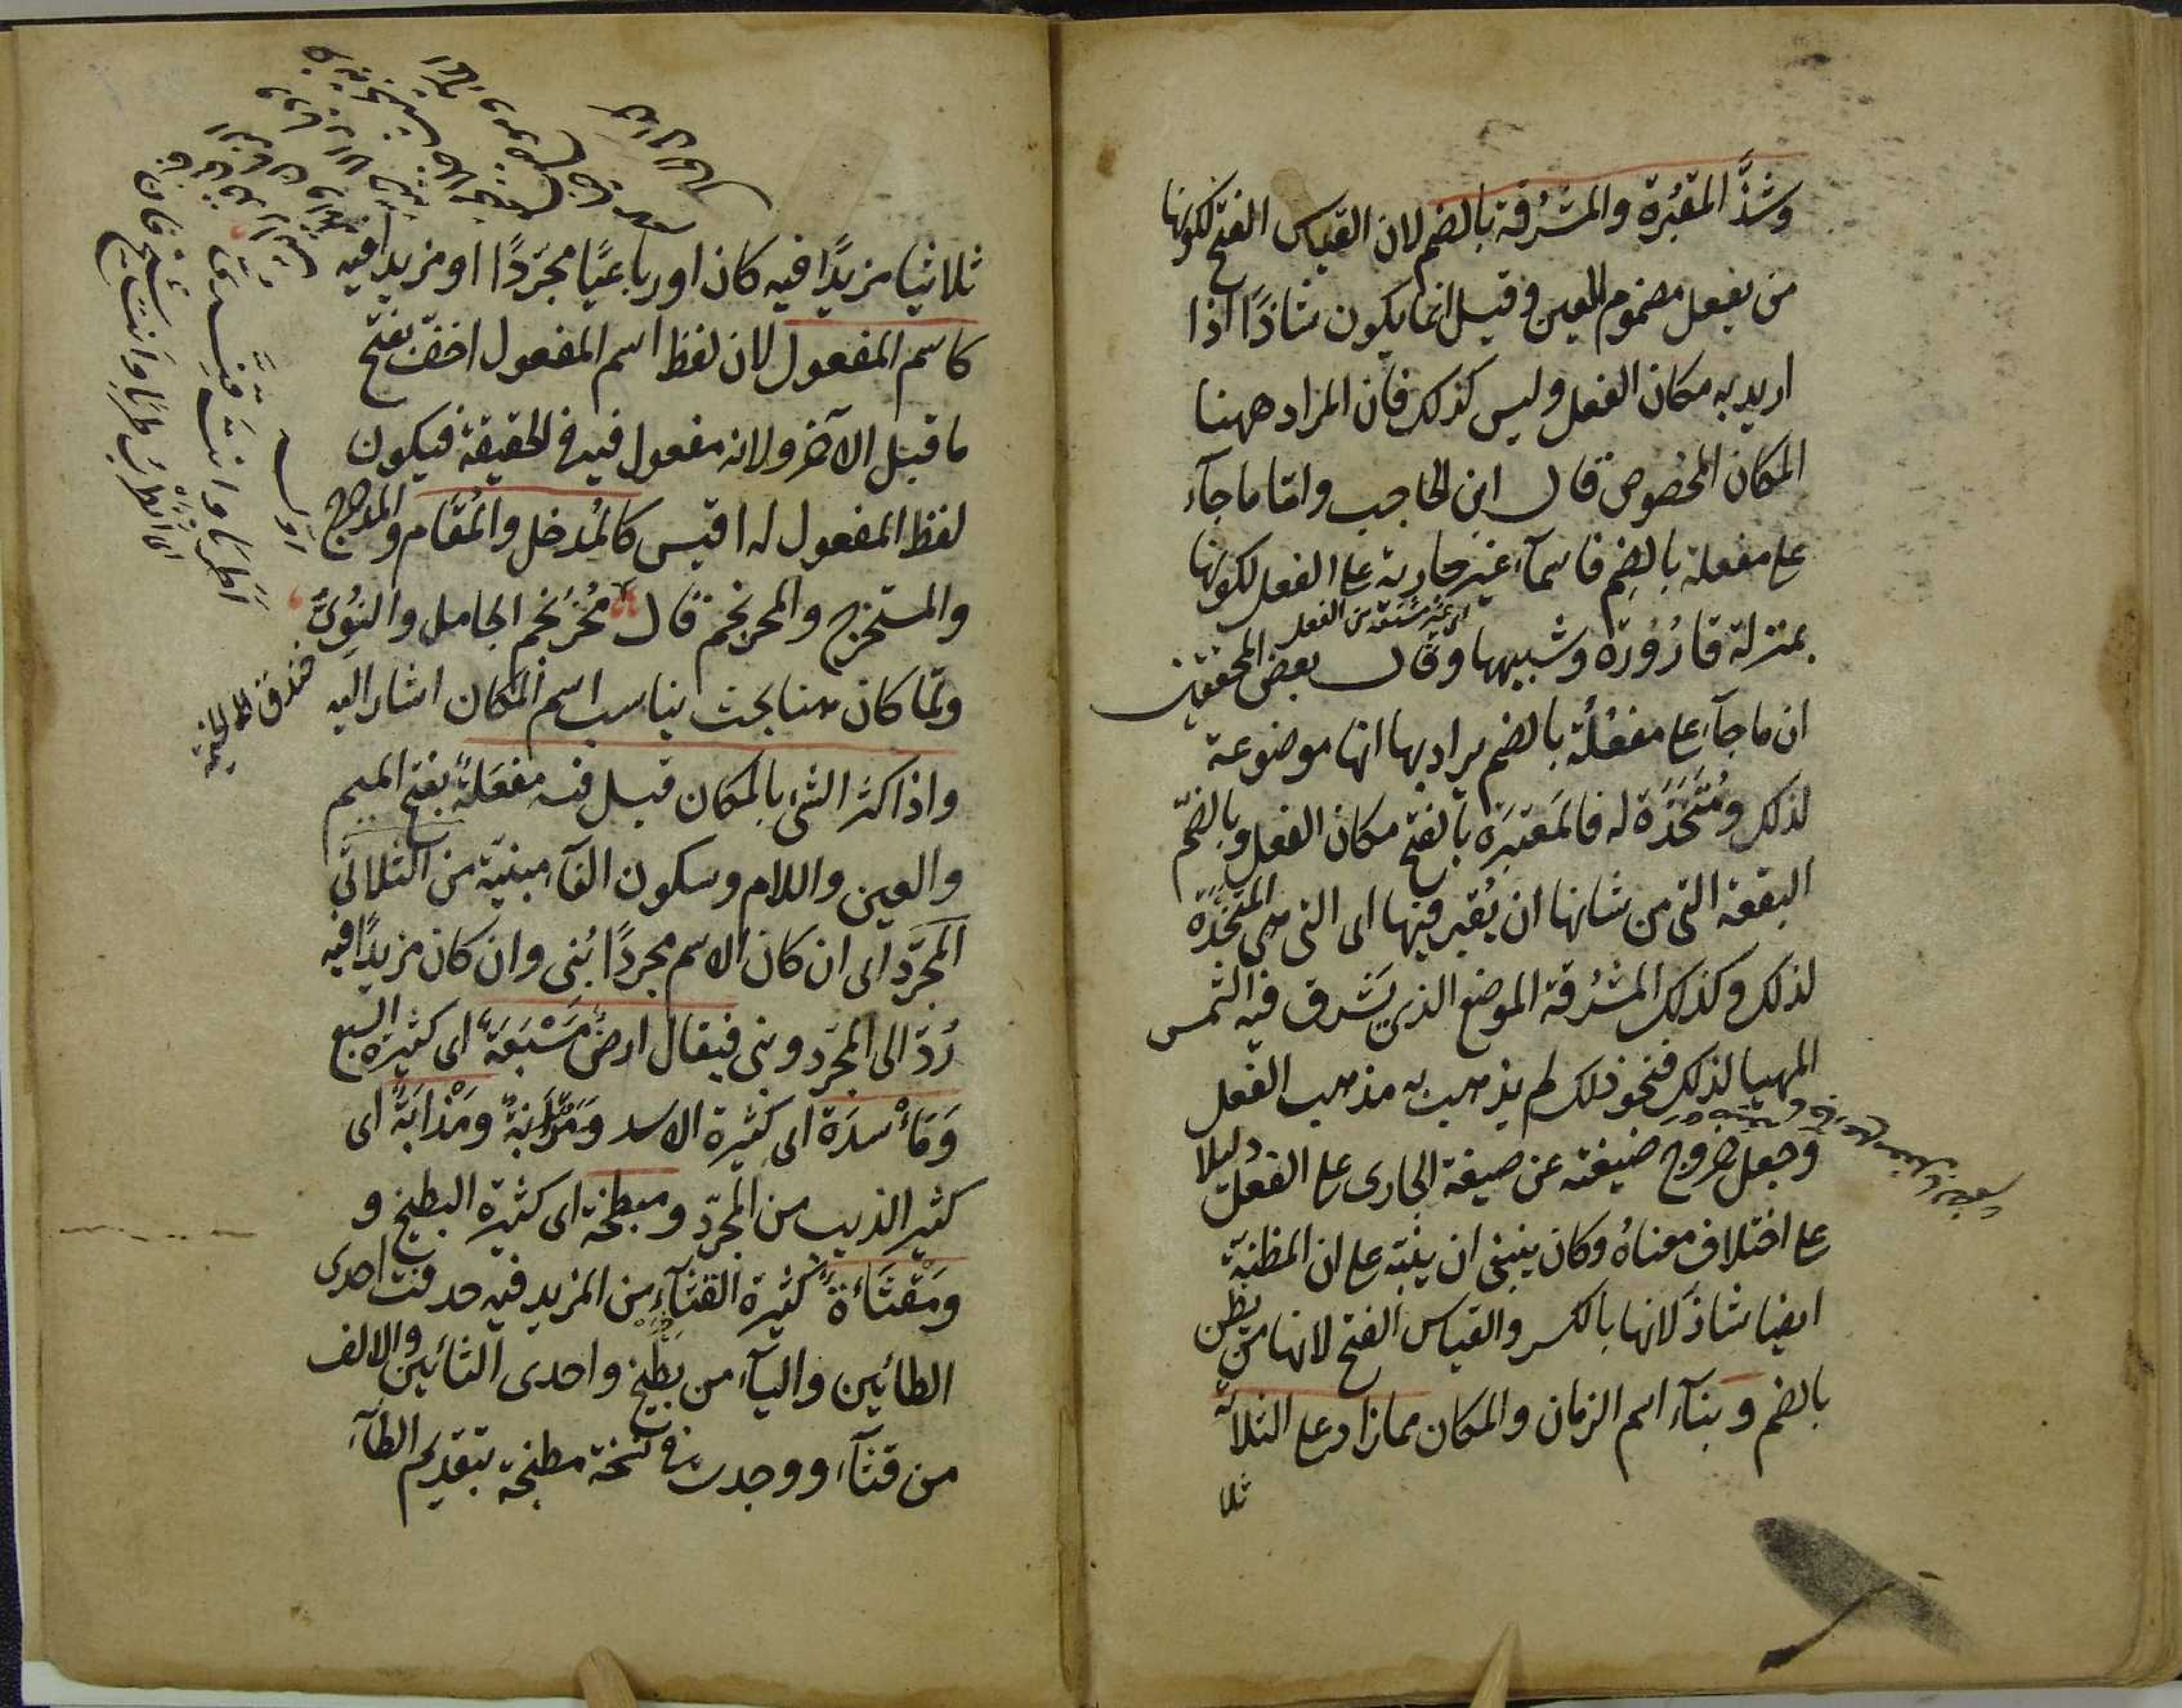 وشذَّ المقبُرة والمشرُقة بالضم لان القياس الفتح لكونها
من يفعل مضموم العين وقيل انما يكون شاذًا اذا
اريد به مكان الفعل وليس كذلك فان المراد ههنا
المكان المخصوص قال ابن الحاجب واما ما جآء
على مفعلة بالضم فاسمآء غير جارية على الفعل لكونها
اى غير مشتقة من الفعل
بمنزلة قارُوُرة وشبهها وقال بعض المحققين
ان ما جآء على مفعُلة بالضم يراد بها انها موضوعة
لذلك ومُتَّخَذة له فالمَقبَرة بالفتح مكان الفعل وبالضمّ
البقعة التى من شانها ان يُقبر فيها اى التى هى المتّخذة
لذلك وكذلك المشرُقة الموضع الذى يَشرق فيه الشمس
المهيا لذلك فنحو ذلك لم يذهب به مذهب الفعل
وجعل خروج صيغته عن صيغة الجارى على الفعل دليلا
على اختلاف معناه وكان ينبغى ان ينبّه على ان المظنة
ايضا شاذ لانها بالكسر والقياس الفتح لانها من يظن
بالضم وبنآء اسم الزمان والمكان مما زاد على الثلاثة
ثلا
ثلاثيا مزيدًا فيه كان او رباعيًا مجرّدًا او مزيدا فيه
كاسم المفعول لان لفظ اسم المفعول اخفّ بفتح
ما قبل الآخر ولانه مفعول فيه فى الحقيقة فيكون
لفظ المفعول له اقيس كالمُدخل والمُقام والمدحرج
والمستخرج والمحرنجم قال مُحْرَنْجَم الجامل والنؤىّ
ولمّا كان هنا بحث يناسب اسم المكان اشار اليه
واذا كثر الشئ بالمكان قيل فيه مفعَلةٌ بفتح الميم
والعين واللام وسكون الفآء مبنيّة من الثلاثى
المجرّد اى ان كان الاسم مجردًا بُنى وان كان مزيدًا فيه
رُدّ الى المجرّد وبنى فيقال ارضٌ مَسْبَعَةٌ اى كثيرة السبع
وَمَأْسدَة اى كثيرة الاسد ومَذْأبَةٌ اى
كثير الذيب من المجرّد ومبطخة اى كثيرة البطيخ و
ومَقْثَأة كثيرة القثآء من المزيد فيه حذفت احدى
الطائين واليآء من بطّيخ واحدى الثائين والالف
من قثآء ووجدت فى نسخة مطبخة بتقديم الطآء